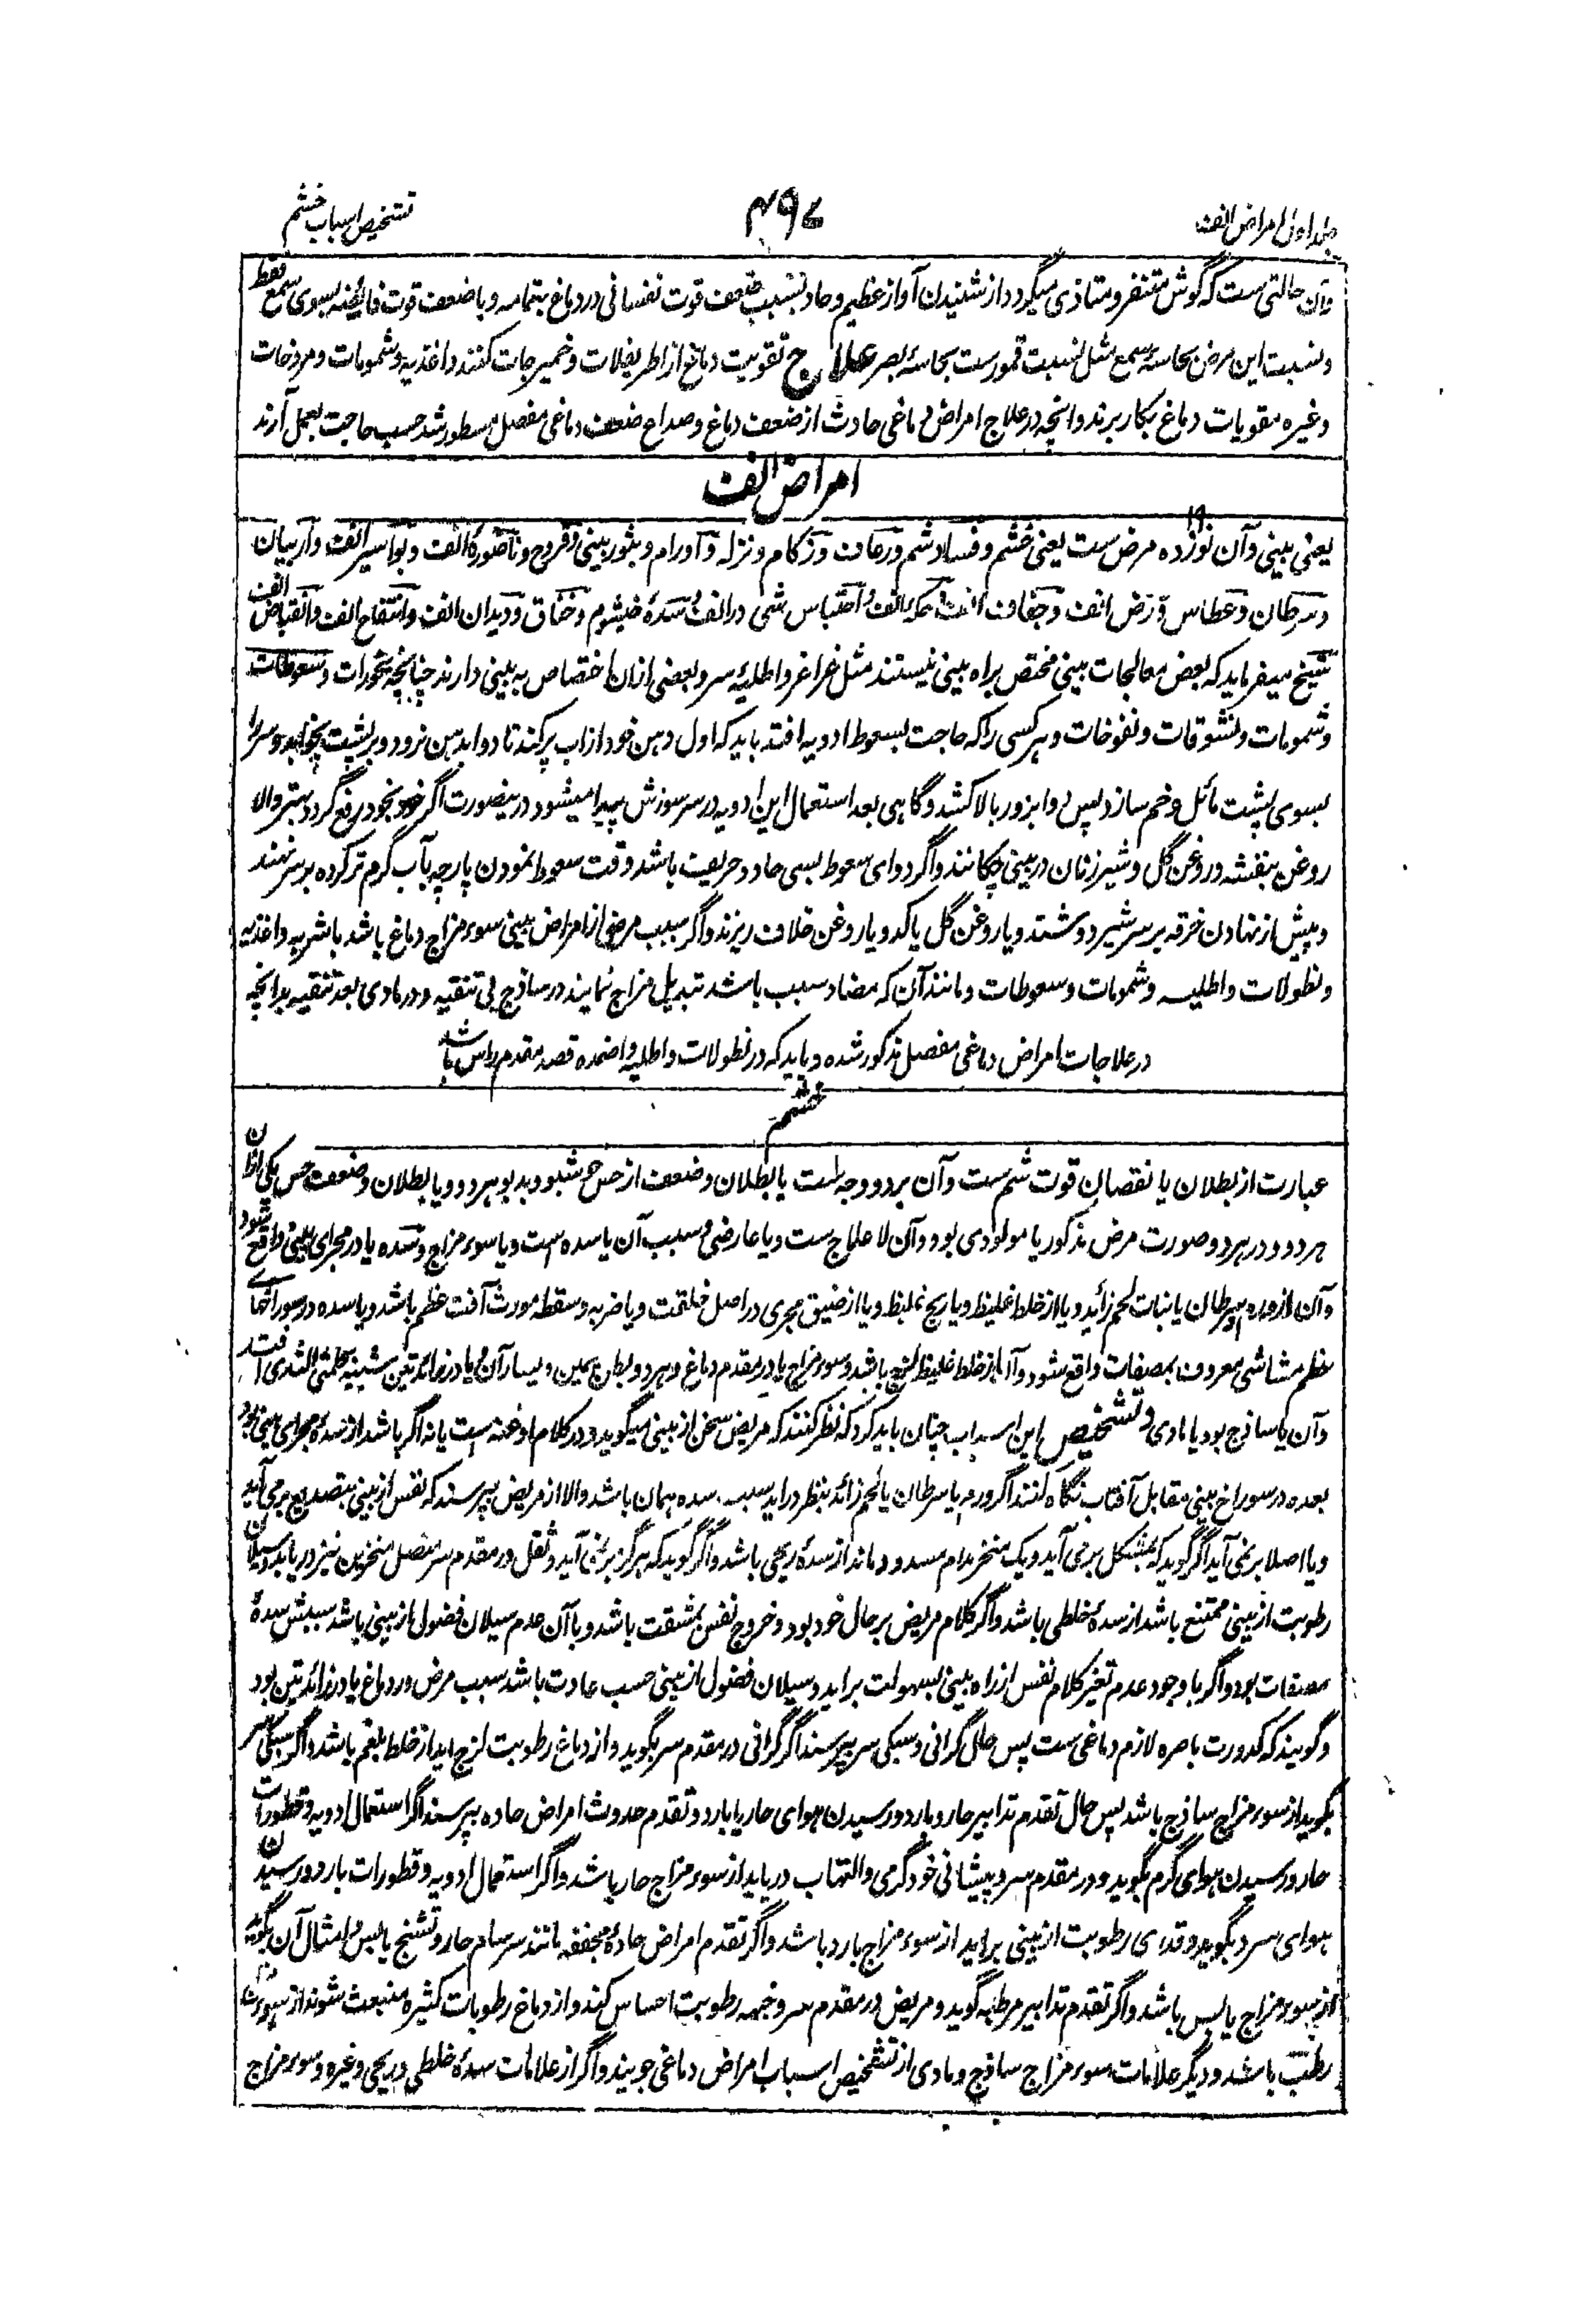 جلد اول امراض انف
۴۹۷
تشخیص اسباب خشم
وآن حالتی ست که گوش متنفر و متاذی میگردد از شنیدن آواز عظیم و حاد بسبب ضعف قوت نفسانی در دماغ بتمامه و یا ضعف قوت فائضه بسوی سمع فقط
و نسبت این مرض بحاسهٔ سمع مثل نسبت قمورست بحاسهٔ بصر علاج تقویت دماغ از اطریفلات و خمیرجات کنند و اغذیه و شمومات و مروخات
وغیره مقویات دماغ بکار برند و انچه در علاج امراض دماغی حادث از ضعف دماغ و صداع ضعف دماغی مفصل مسطور شد حسب حاجت بعمل آرند
امراض انف
یعنی بینی وآن نوزده ۱۹ مرض ست یعنی خشم و فساد شم و رعاف و زکام و نزله و اورام و بثور بینی و قروح و ناصور انف و بواسیر انف و اربیان
و سرطان و عطاس و رض انف و جفاف انف و حکهٔ انف و احتباس شی در انف و سدهٔ خیشوم و خناق و دیدان انف و انتفاخ انف و انقباض انف
شیخ میفرماید که بعض معالجات بینی مختص براه بینی نیستند مثل غراغر و اطلیهٔ سر و بعضی ازان اختصاص به بینی دارند چنانچه بخورات و سعوطات
و شمومات و نشوقات و نفوخات و هر کسی را که حاجت بسعوط ادویه افتد باید که اول دهن خود از اب پر کند تا دوا بدهن نرود و بر پشت بخوابد و سر را
بسوی پشت مائل و خم سازد پس دوا بزور بالا کشد و گاهی بعد استعمال این ادویه در سر سوزش پیدا میشود درینصورت اگر خود بخود رفع گردد بهتر والا
روغن بنفشه و روغن گل و شیر زنان در بینی چکانند و اگر دوای سعوط بسی حاد و حریف باشد وقت سعوط نمودن پارچه بآب گرم تر کرده بر سر نهند
و پیش از نهادن خرقه بر سر شیر دوشند و یا روغن گل یا کدو یا روغن خلاف ریزند و اگر سبب مرضی از امراض بینی سوء مزاج دماغ باشد باشربه و اغذیه
و نطولات و اطلیه و شمومات و سعوطات و مانند آن که مضاد سبب باشد تبدیل مزاج نمایند در ساذج بی تنقیه و در مادی بعد تنقیه بدانچه
در علاجات امراض دماغی مفصل مذکور شده و باید که در نطولات و اطلیه و اضمده قصد مقدم راس باشد
خشم
عبارت از بطلان یا نقصان قوت شم ست وآن بر دو وجه است یا بطلان و ضعف از حس خوشبو و بدبو هر دو و یا بطلان و ضعف حس یکی ازان
هر دو و در هر دو صورت مرض مذکور یا مولودی بود وآن لا علاج ست و یا عارضی و سبب آن یا سده است و یا سوء مزاج و سده یا در مجرای بینی واقع شود
وآن از ورم سرطان یا نبات لحم زائد و یا از خلط غلیظ و یا ریح غلیظ و یا از ضیق مجری در اصل خلقت و یا ضربه و سقطه مورث آفت عظم باشد و یا سده در سوراخهای
عظم مشاشی معروف بمصفات واقع شود وآن از خلط غلیظ لزج باشد و سوء مزاج یا در مقدم دماغ و هر دو بطن یمین و یسار آن و یا در زائدتین شبیه بحلمتی الثدی افتد
وآن یا ساذج بود یا مادی و تشخیص این اسباب چنان باید کرد که نظر کنند که مریض سخن از بینی میگوید و در کلام او غنه است یا نه اگر باشد از سدهٔ مجرای بینی بود
بعده در سوراخ بینی مقابل آفتاب نگاه کنند اگر ورم یا سرطان یا لحم زائد بنظر دراید سبب سده همان باشد والا از مریض بپرسند که نفس از بینی برمی آید
و یا اصلا برنمی آید اگر گوید که بمشکل برمی آید و یک منخر مدام مسدود ماند از سدهٔ ریحی باشد و اگر گوید که هرگز برنمی آید و ثقل در مقدم سر متصل منخرین نیز دریابد و سیلان
رطوبت از بینی ممتنع باشد از سدهٔ خلطی باشد و اگر کلام مریض بر حال خود بود و خروج نفس بمشقت باشد و با آن عدم سیلان فضول از بینی باشد سببش سدهٔ
مصفات بود و اگر باوجود عدم تغیر کلام نفس از راه بینی بسهولت براید و سیلان فضول از بینی حسب عادت باشد سبب مرض در دماغ یا در زائدتین بود
و گویند که کدورت باصره لازم دماغی ست پس حال گرانی و سبکی سر بپرسند اگر گرانی در مقدم سر بگوید و از دماغ رطوبت لزج اید از خلط بلغم باشد و اگر سبکی سر
بگوید از سوء مزاج ساذج باشد پس حال تقدم تدابیر حار و بارد و رسیدن هوای حار یا بارد و تقدم حدوث امراض حاده بپرسند اگر استعمال ادویه و قطورات
حار و رسیدن هوای گرم بگوید و در مقدم سر و پیشانی خود گرمی و التهاب دریابد از سوء مزاج حار باشد و اگر استعمال ادویه و قطورات بارد و رسیدن
هوای سرد بگوید و قدری رطوبت از بینی براید از سوء مزاج بارد باشد و اگر تقدم امراض حادهٔ مجففه مانند سرسام حار و تشنج یابس و امثال آن بگوید
از سوء مزاج یابس باشد و اگر تقدم تدابیر مرطبه گوید و مریض در مقدم سر و جبهه رطوبت احساس کند و از دماغ رطوبات کثیره منبعث شوند از سوء مزاج
رطب باشد و دیگر علامات سوء مزاج ساذج و مادی از تشخیص اسباب امراض دماغی جویند و اگر از علامات سدهٔ خلطی و ریحی وغیره و سوء مزاج